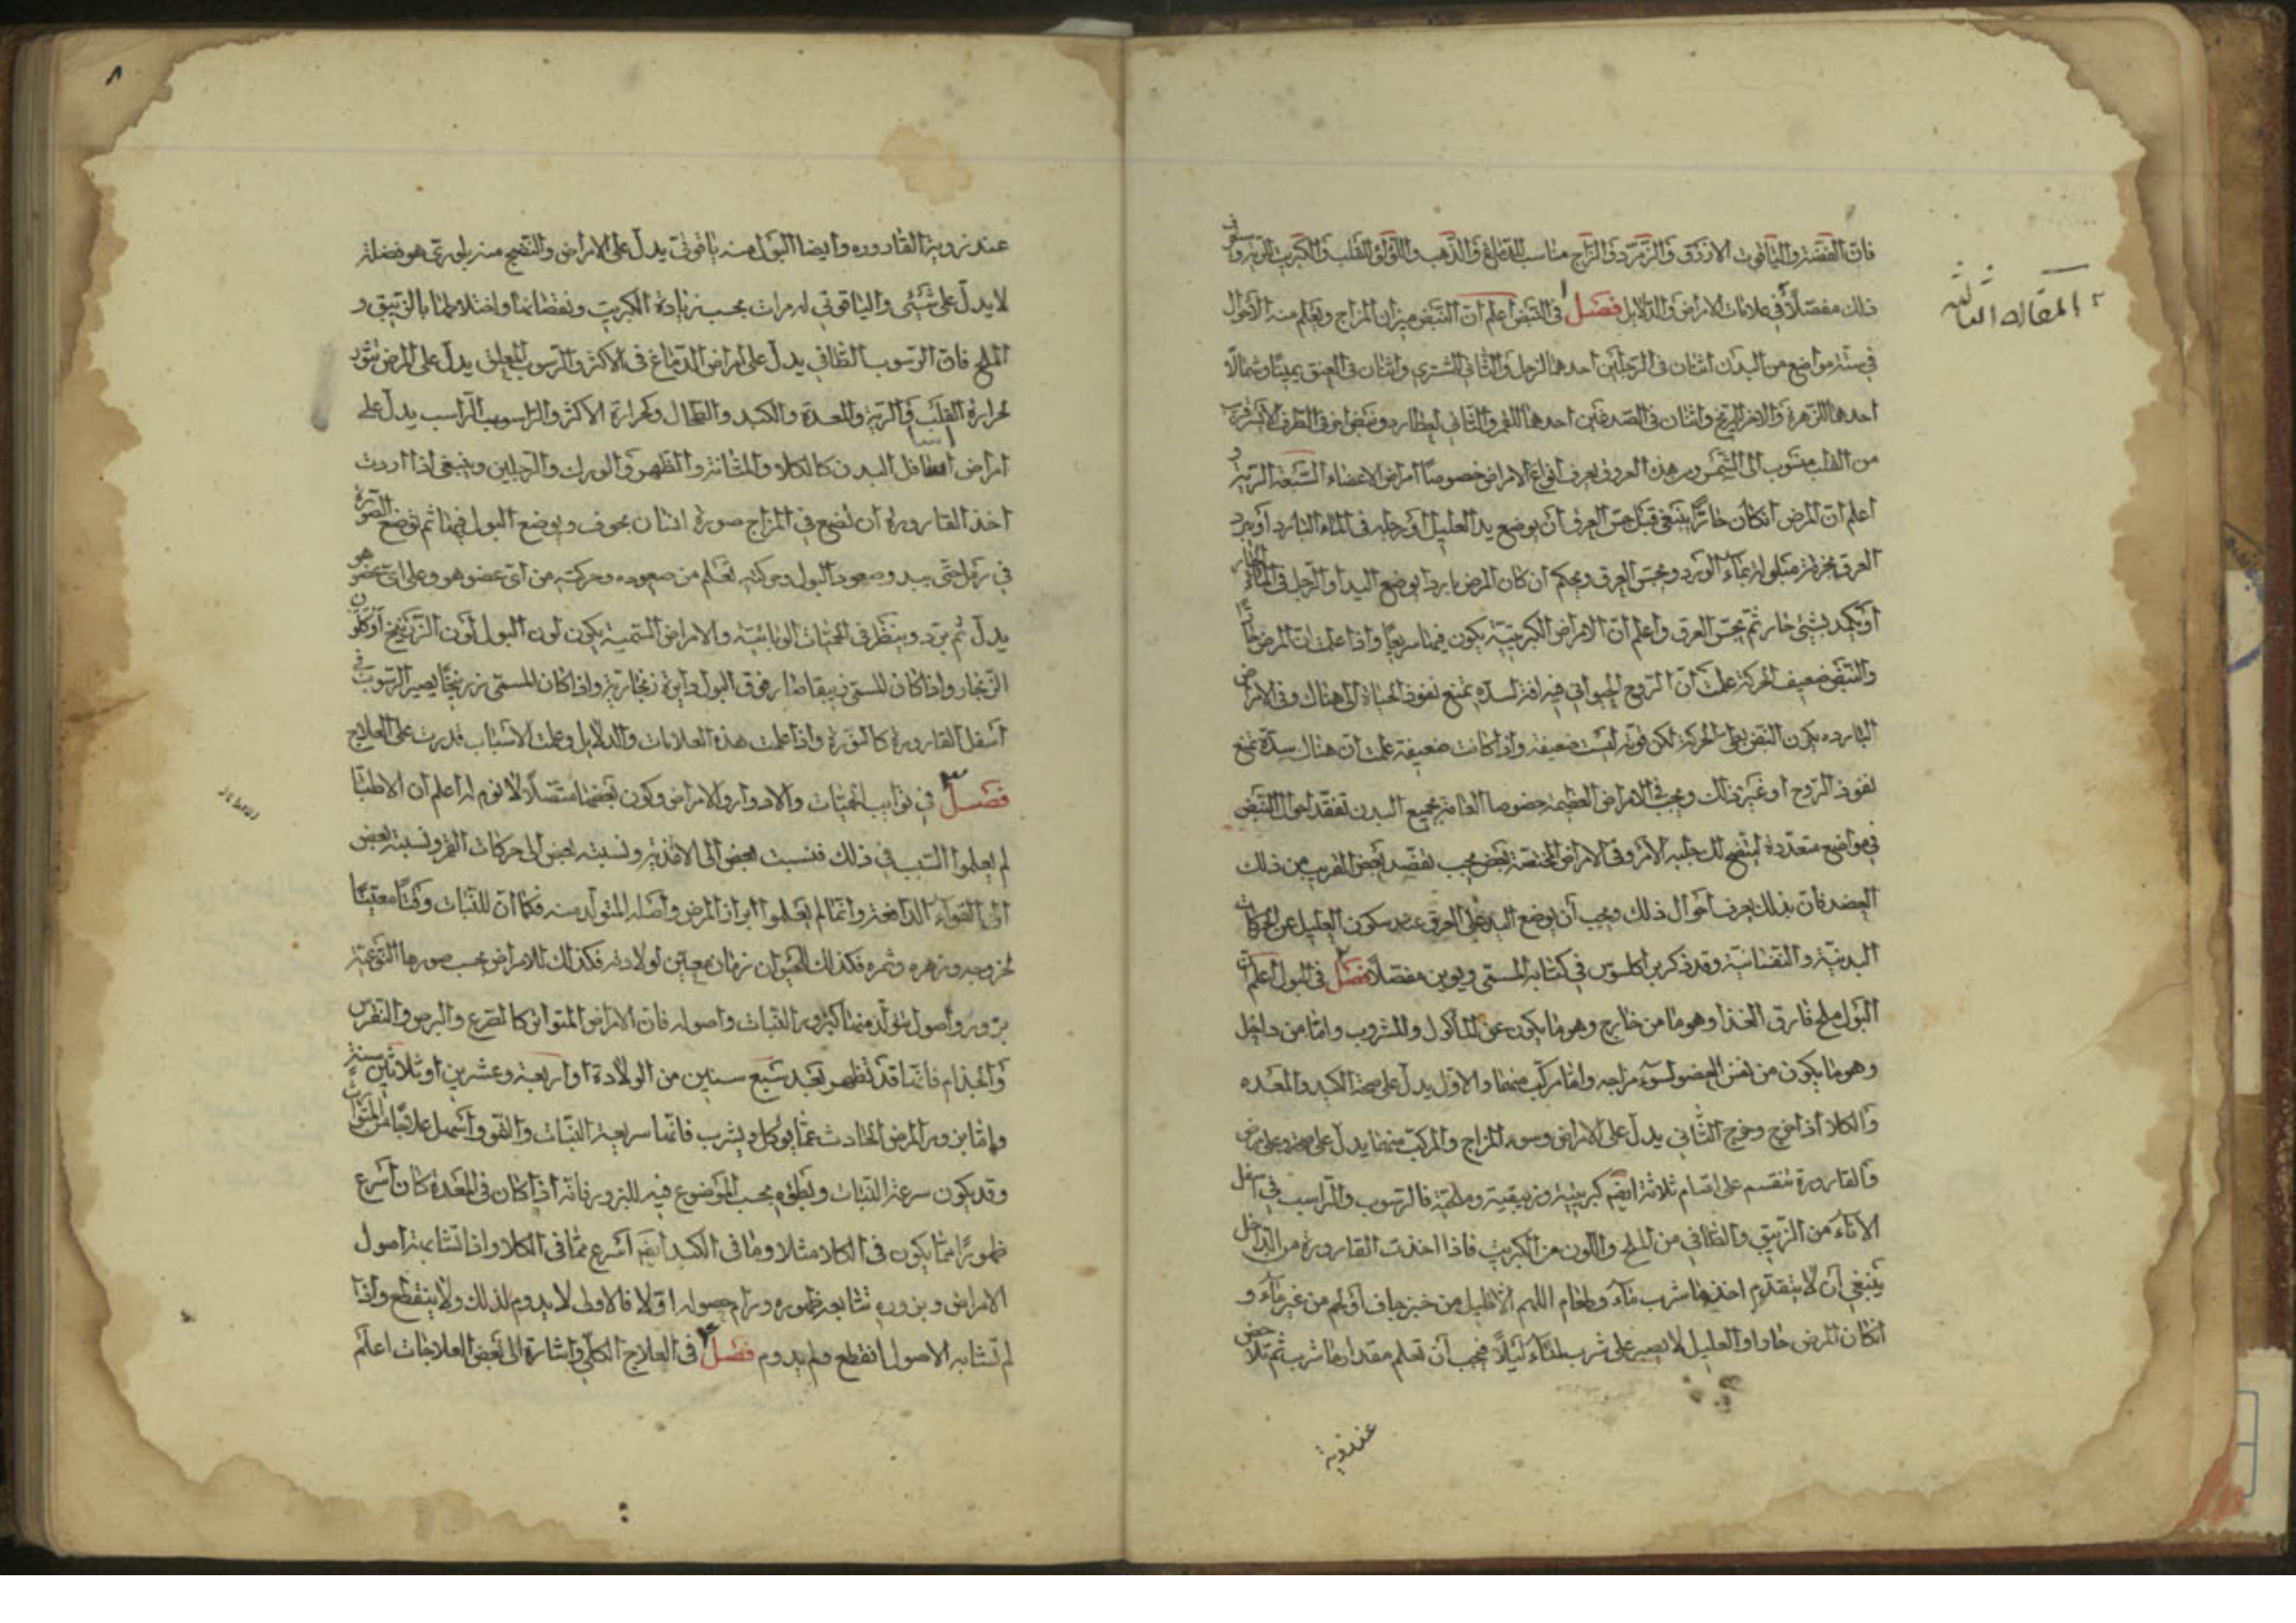 المقالة الثالثة
فان الفضة والياقوت الازرق والزمرد والزاج مناسب للدماغ والذهب واللؤلؤ للقلب والكبريت للرية
ذلك مفصلا في علامات الامراض والدلايل فصل في النبض اعلم ان النبض ميزان المزاج ويعلم منه الاحوال
في ستة مواضع من البدن اثنان في الرجلين احدهما لزحل والثاني للمشتري واثنان في العنق يمينا وشمالا
احدهما للزهرة والاخر للمريخ واثنان في الصدغين احدهما للقمر والثاني لعطارد ونبض اخر في الطرف الايسر قريب
من القلب منسوب الى الشمس ومن هذه العروق يعرف انواع الامراض خصوصا امراض الاعضاء السبعة الرئيسة
اعلم ان المرض ان كان حارا ينبغي قبل جس العرق ان يوضع يد العليل او رجله في الماء البارد او يبرد
العرق بخرقة مبلولة بماء الورد ويجس العرق ويحكم ان كان المرض باردا يوضع اليد او الرجل في الماء الحار
او يكمد بشيء حار ثم يجس العرق واعلم ان الامراض الكبريتية يكون فيها سريعا واذا علمت ان المرض حارا
والنبض ضعيف الحركة علمت ان الروح الحيواني فيه افة لسدة يمنع نفوذ الحياة الى هناك وفي الامراض
الباردة يكون النبض بطيء الحركة لكن قوته ليست ضعيفة واذا كانت ضعيفة علمت ان هناك سدة تمنع
نفوذ الروح او غير ذلك ويجب في الامراض العظيمة خصوصا العامة بجميع البدن تفقد احوال النبض
في مواضع متعددة ليتضح لك جلية الامر وفي الامراض المختصة بعضو يجب تفقد نبض القريب من ذلك
العضو فان بذلك يعرف احوال ذلك ويجب ان يوضع اليد على العرق عند سكون العليل عن الحركات
البدنية والنفسانية وقد ذكر براكلسوس في كتابه المسمى مفصلا فصل في البول اعلم ان
البول ملح فارق الغذا وهو اما من خارج وهو ما يكون عن المأكول والمشروب واما من داخل
وهو ما يكون من نفس العضو لسوء مزاجه واما مركب منهما والاول يدل على صحة الكبد والمعدة
والكلا اذا خرج وخرج الثاني يدل على الامراض وسوء المزاج والمركب منهما يدل على صحة وعلى مرض
والقارورة تنقسم على اقسام ثلاثة ايضم كبريتية وزيبقية وملحية فالرسوب والراسب في اسفل
الاناء من الزيبق والطافي من الملح واللون من الكبريت فاذا اخذت القارورة من الداخل
ينبغي ان لا يتقدم اخذها شرب ماء وطعام اللهم الا قليل من خبز جاف او لحم من غير ماء و
ان كان المرض حادا والعليل لا يصبر على شرب الماء ليلا فيجب ان تعلم مقدار ما شرب ثم تلاحظ
عند روية
٨
عند روية القارورة وايضا البول منه ياقوتي يدل على الامراض والنضج منه بلوري هو فضلة
لا يدل على شيئ والياقوتي له مرات بحسب زيادة الكبريت ونقصانها واختلاطها بالزيبق و
الملح فان الرسوب الطافي يدل على امراض الدماغ في الاكثر والرسوب المعلق يدل على المرض
لحرارة القلب والرية والمعدة والكبد والطحال ولحرارة الاكثر والرسوب الراسب يدل على
امراض اسافل البدن كالكلا والمثانة والظهر والورك والرجلين وينبغي اذا اردت
اخذ القارورة ان تضع في المزاج صورة انسان مجوف ويوضع البول فيها ثم توضع الصورة
في رمل حتى يبدو صعود البول وحركته تعلم من صعوده وحركته من اي عضو هو وعلى اي عضو هو
يدل ثم برد وينظر في الحميات الوبائية والامراض السمية يكون لون البول لون الزرنيخ او كلون
الزنجار واذا كان السم زيبقا صار فوق البول دايرة زنجارية واذا كان السم زرنيخا يصير الرسوب في
اسفل القارورة كالنورة واذا علمت هذه العلامات والدلايل وعلمت الاسباب قدرت على العلاج
فصل ٣ في نوايب الحميات والادوار والامراض وكون بعضها متصلا لا نوم له اعلم ان الاطبا
لم يعلموا السبب في ذلك فنسبت بعض الى الاغذية ونسبته بعض الى حركات القمر ونسبته بعض
الى القواء الدافعة وانما لم يعلموا ابراز المرض واصله المتولد منه فكما ان للنبات وقتا معينا
لخروجه وزهره وثمره فكذلك للحيوان زمان معين لولادته فكذلك للامراض بحسب صورها النوعية
بزور واصول تتولد منها كبزور النبات واصوله فان الامراض المتوارثة كالصرع والبرص والنقرس
والجذام فانها قد تظهر بعد سبع سنين من الولادة او اربعة وعشرين او ثلاثين سنة
واما بزور المرض الحادث عما يوكل ويشرب فانها سريعة النبات والنمو واسهل علاجا من المتوارث
وقد يكون سرعة النبات وبطؤه بحسب الموضوع فيه للبزور فانه اذا كان في المعدة كان اسرع
ظهورا مما يكون في الكلا مثلا وما في الكبد ايضم اسرع مما في الكلا واذا تشابهت اصول
الامراض وبزوره تتابعه ظهوره ودام حصوله اولا فالاولى لا يدوم لذلك ولا ينقطع واذا
لم تشابه الاصول انقطع ولم يدوم فصل ٤ في العلاج الكلي واشارة الى بعض العلاجات اعلم